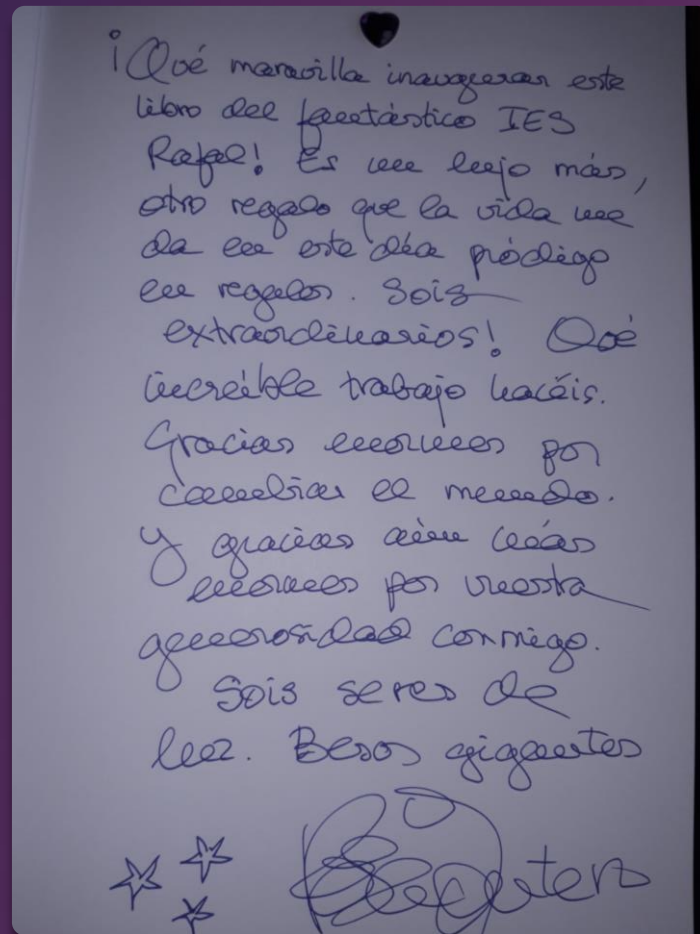 ¡Qué maravilla inaugurar este
libro del fantástico IES
Rafal! Es un lujo más,
otro regalo que la vida me
da en este día pródigo
en regalos. Sois
extraordinarios! Qué
increíble trabajo hacéis.
Gracias enormes por
cambiar el mundo.
Y gracias aún más
enormes por vuestra
generosidad conmigo.
Sois seres de
luz. Besos gigantes